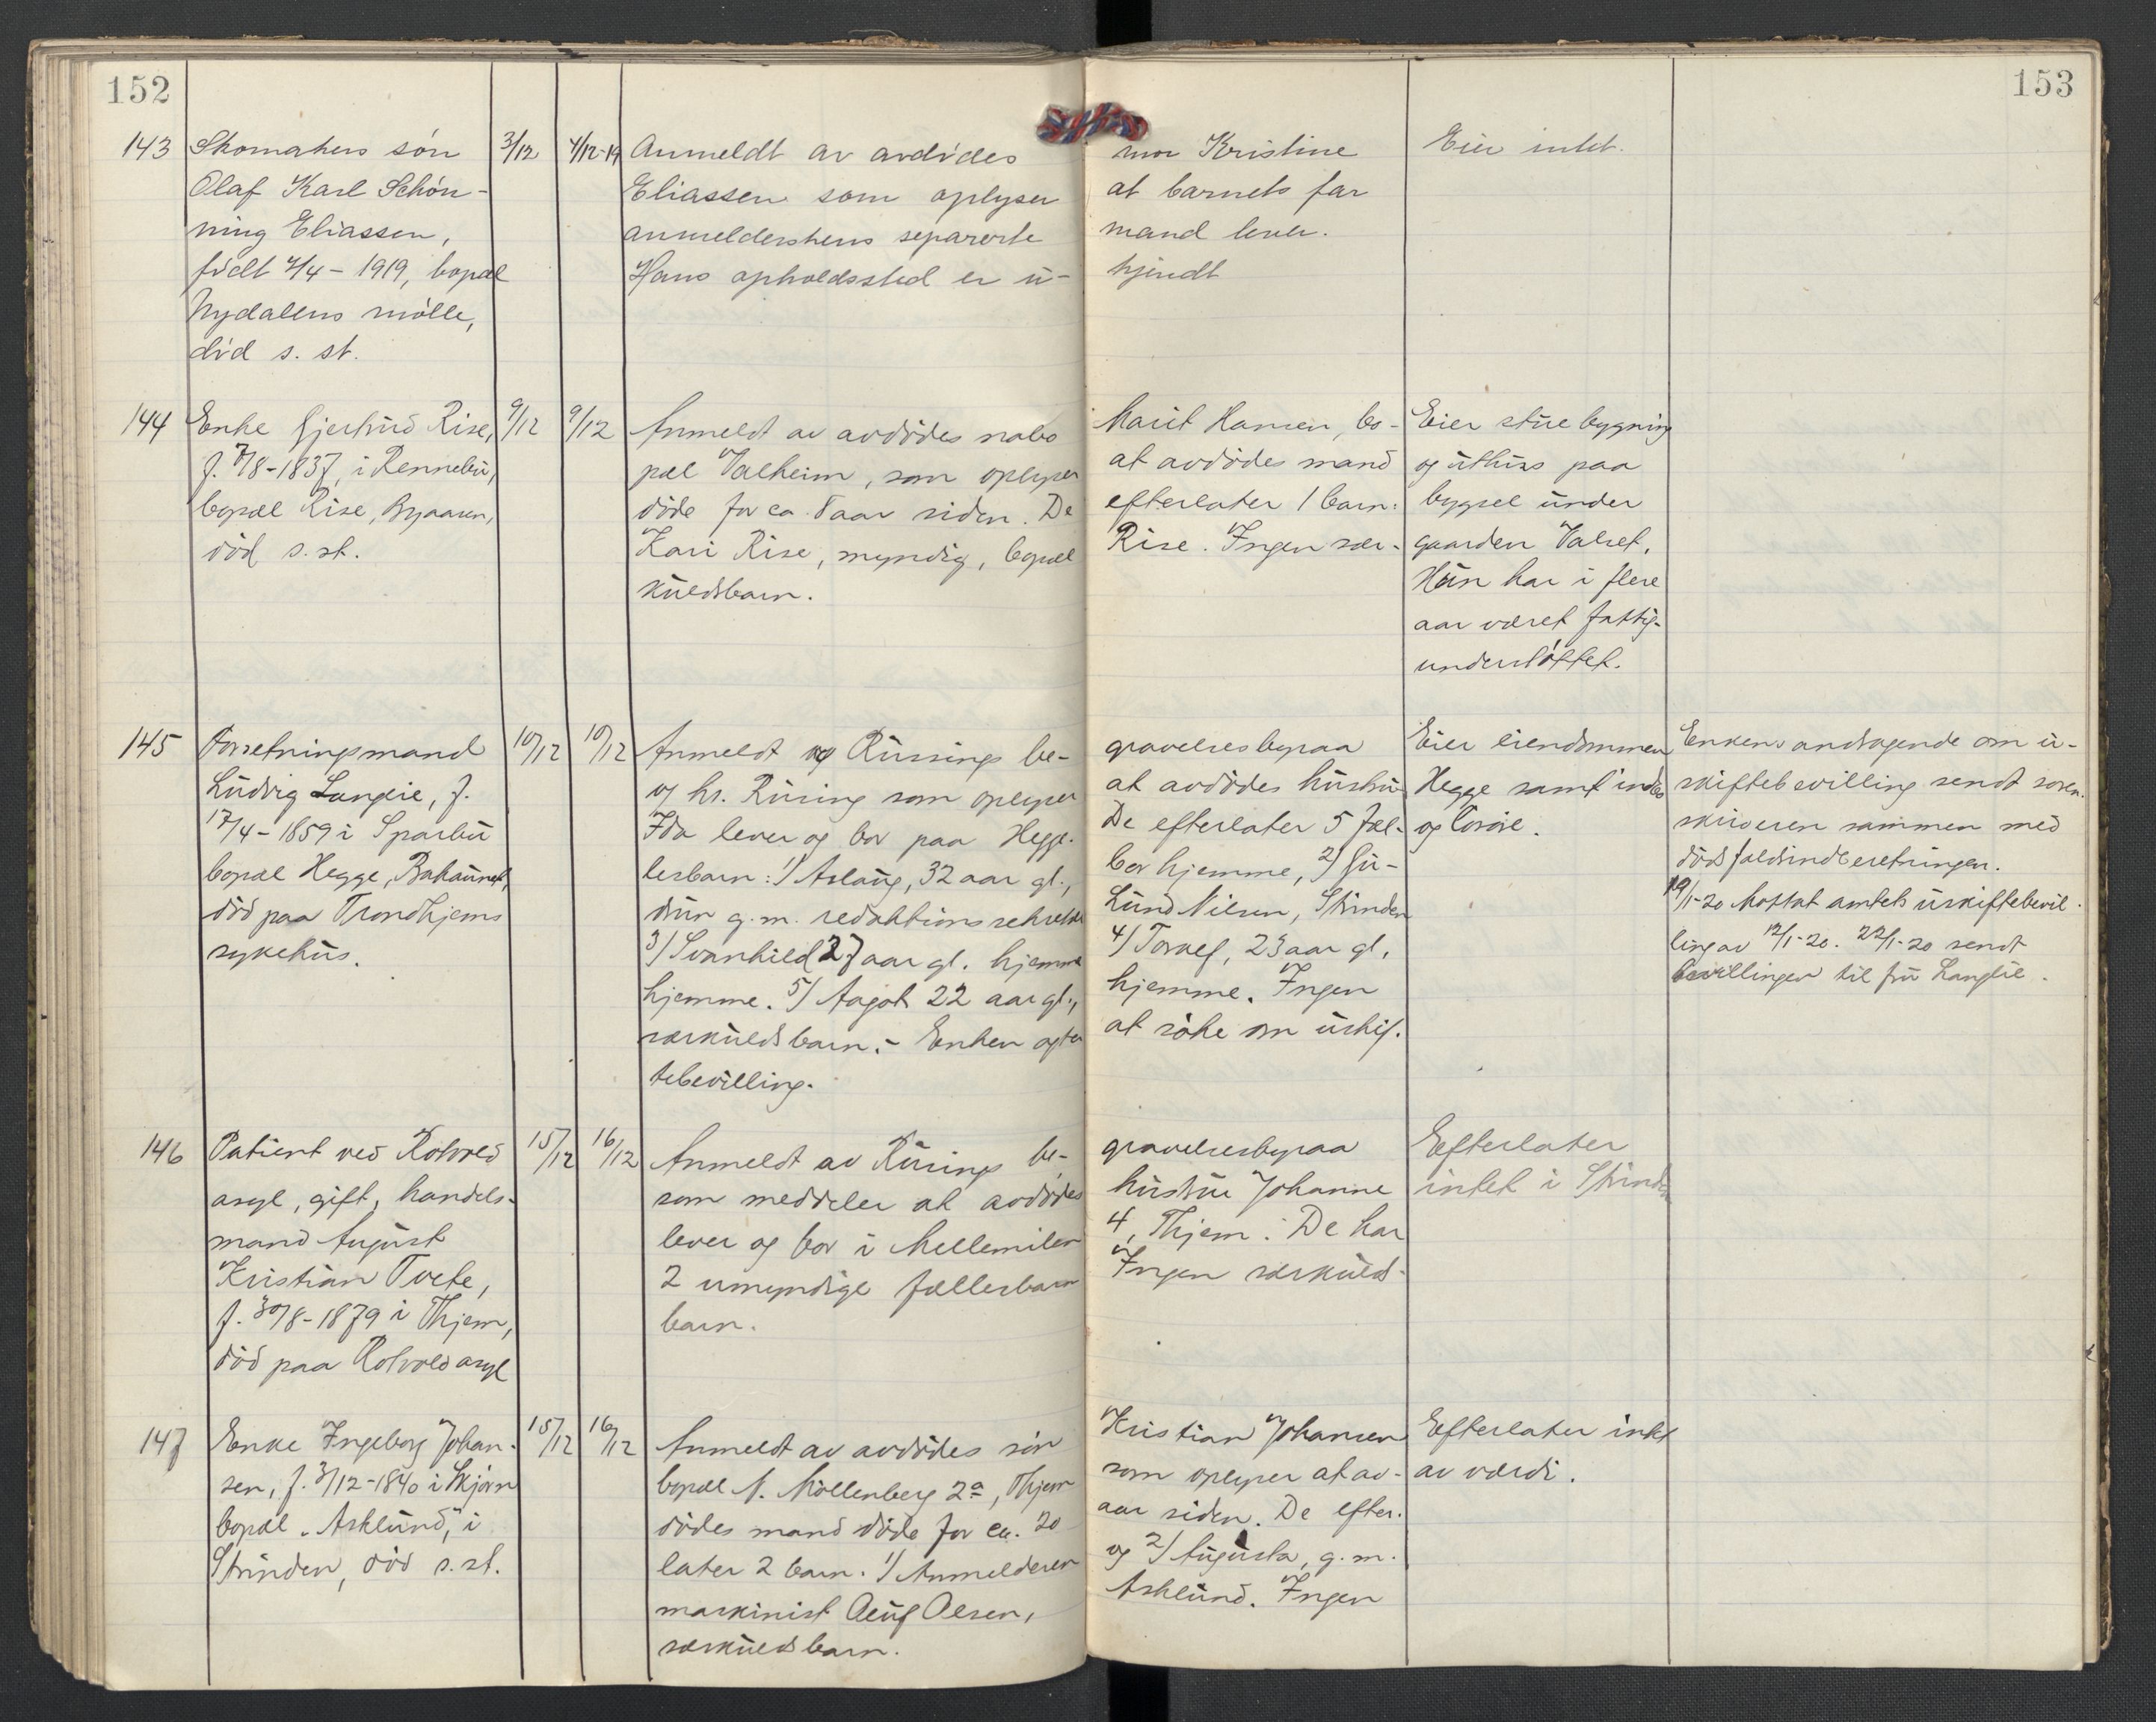 152
153
143 Skomakers søn 3/12 4/12-19 Anmeldt av avdødes mor Kristine Eier intet.
Olaf Karl Schøn- Eliassen som oplyser at barnets far
ning Eliassen, anmelderskens separerte mand lever.
født 4/4-1919, bopæl Hans opholdssted er u- kjendt
Nydalens mølle,
død s. st.
144 Enke Gjertrud Rise, 9/12 9/12 Anmeldt av avdødes nabo Marit Hansen, bo- Eier stuebygning
f. 7/8-1837, i Rennebu, pæl Valheim, som oplyser at avdødes mand og uthus paa
bopæl Rise, Byaasen, døde for ca. aar siden. De efterlater 1 barn: bygsel under
død s. st. Kari Rise, myndig, bopæl Rise. Ingen sær- gaarden Valset.
kuldsbarn. Hun har i flere
aar været fattig-
understøttet.
145 Forretningsmand 10/12 10/12 Anmeldt av Rusings be- gravelsesbyraa Eier eiendommen Enkens andragende om u-
Ludvig Langlie, f. og hr. Rusing som oplyser at avdødes hustru Hegge samt indbo skiftebevilling sendt soren-
17/4-1859 i Sparbu Ida lever og bor paa Hegge. De efterlater 5 fæl- og løsøre. skriveren sammen med
bopæl Hegge, Bakaunet, lesbarn: 1/ Aslaug, 32 aar gl., bor hjemme, 2/ Gu- dødsfaldsindberetningen.
død paa Trondhjems drun g.m. redaktionssekretær Lund Nilsen, Strinden 19/1-20 Mottat amtets uskiftebevil-
sykehus. 3/ Svanhild 27 aar gl. hjemme 4/ Torleif, 23 aar gl. ling av 12/1-20. 22/1-20 sendt
hjemme. 5/ Aagot 22 aar gl., hjemme. Ingen bevillingen til fru Langlie.
særkuldsbarn.- Enken agter at søke om uskif-
tebevilling.
146 Patient ved Rotvold 15/12 16/12 Anmeldt av Rusings be- gravelsesbyraa Efterlater
asyl, gift, handels- som meddeler at avdødes hustru Johanne intet i Strinden
mand August lever og bor i Mellemilen 4, Thjem. De har
Kristian Tvete, 2 umyndige fællesbarn Ingen særkulds-
f. 30/8-1879 i Thjem, barn.
død paa Rotvold asyl
147 Enke Ingeborg Johan- 15/12 16/12 Anmeldt av avdødes søn Kristian Johansen Efterlater intet
sen, f. 3/12-1840 i Skjørn bopæl N. Møllenberg 2a, Thjem som oplyser at av- av værdi.
bopæl „Asklund," i dødes mand døde for ca. 20 aar siden. De efter-
Strinden, død s. st. later 2 barn. 1/ Anmelderen og 2/ Augusta, g.m.
maskinist Oluf Olsen, Asklund. Ingen
særkuldsbarn.